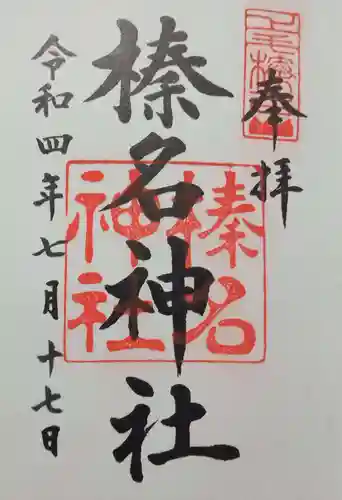 奉拝
榛名神社
令和四年七月十七日
榛名
神社